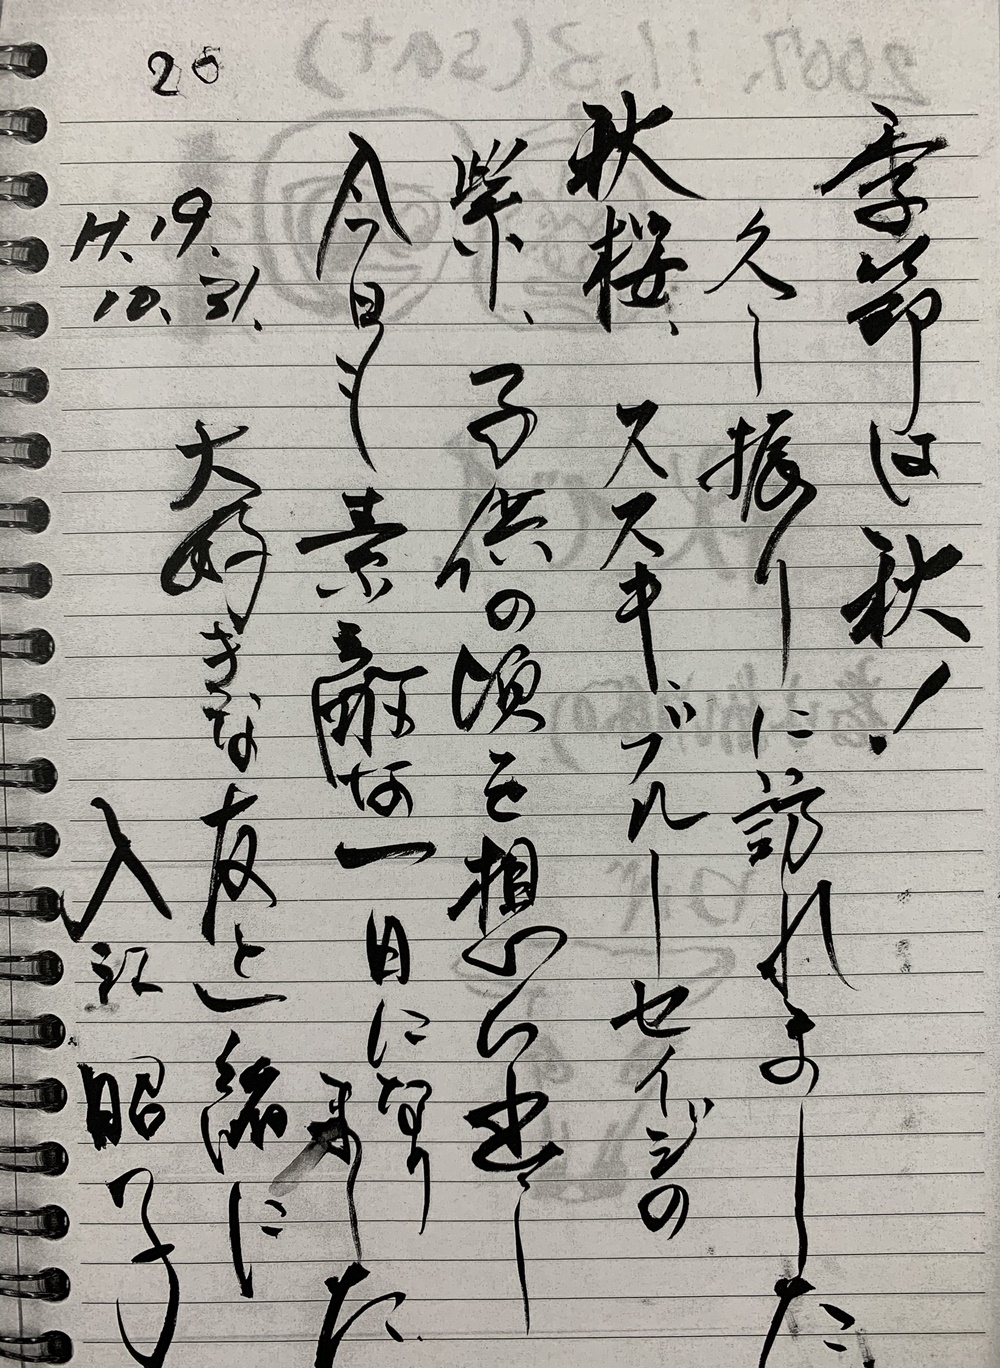 季節は秋!
久し振りに訪れました
秋桜、ススキ ブルーセイジの
紫、子供の頃を想い出し
今日も素敵な一日になりました
大好きな友と一緒に
H.19.
10.31.
入江 昭子
20
2007.11.3(sat)